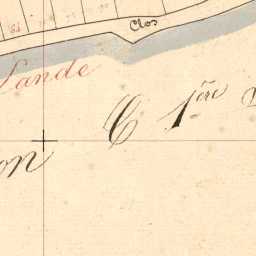 Clos
Lande
C 1ère
on